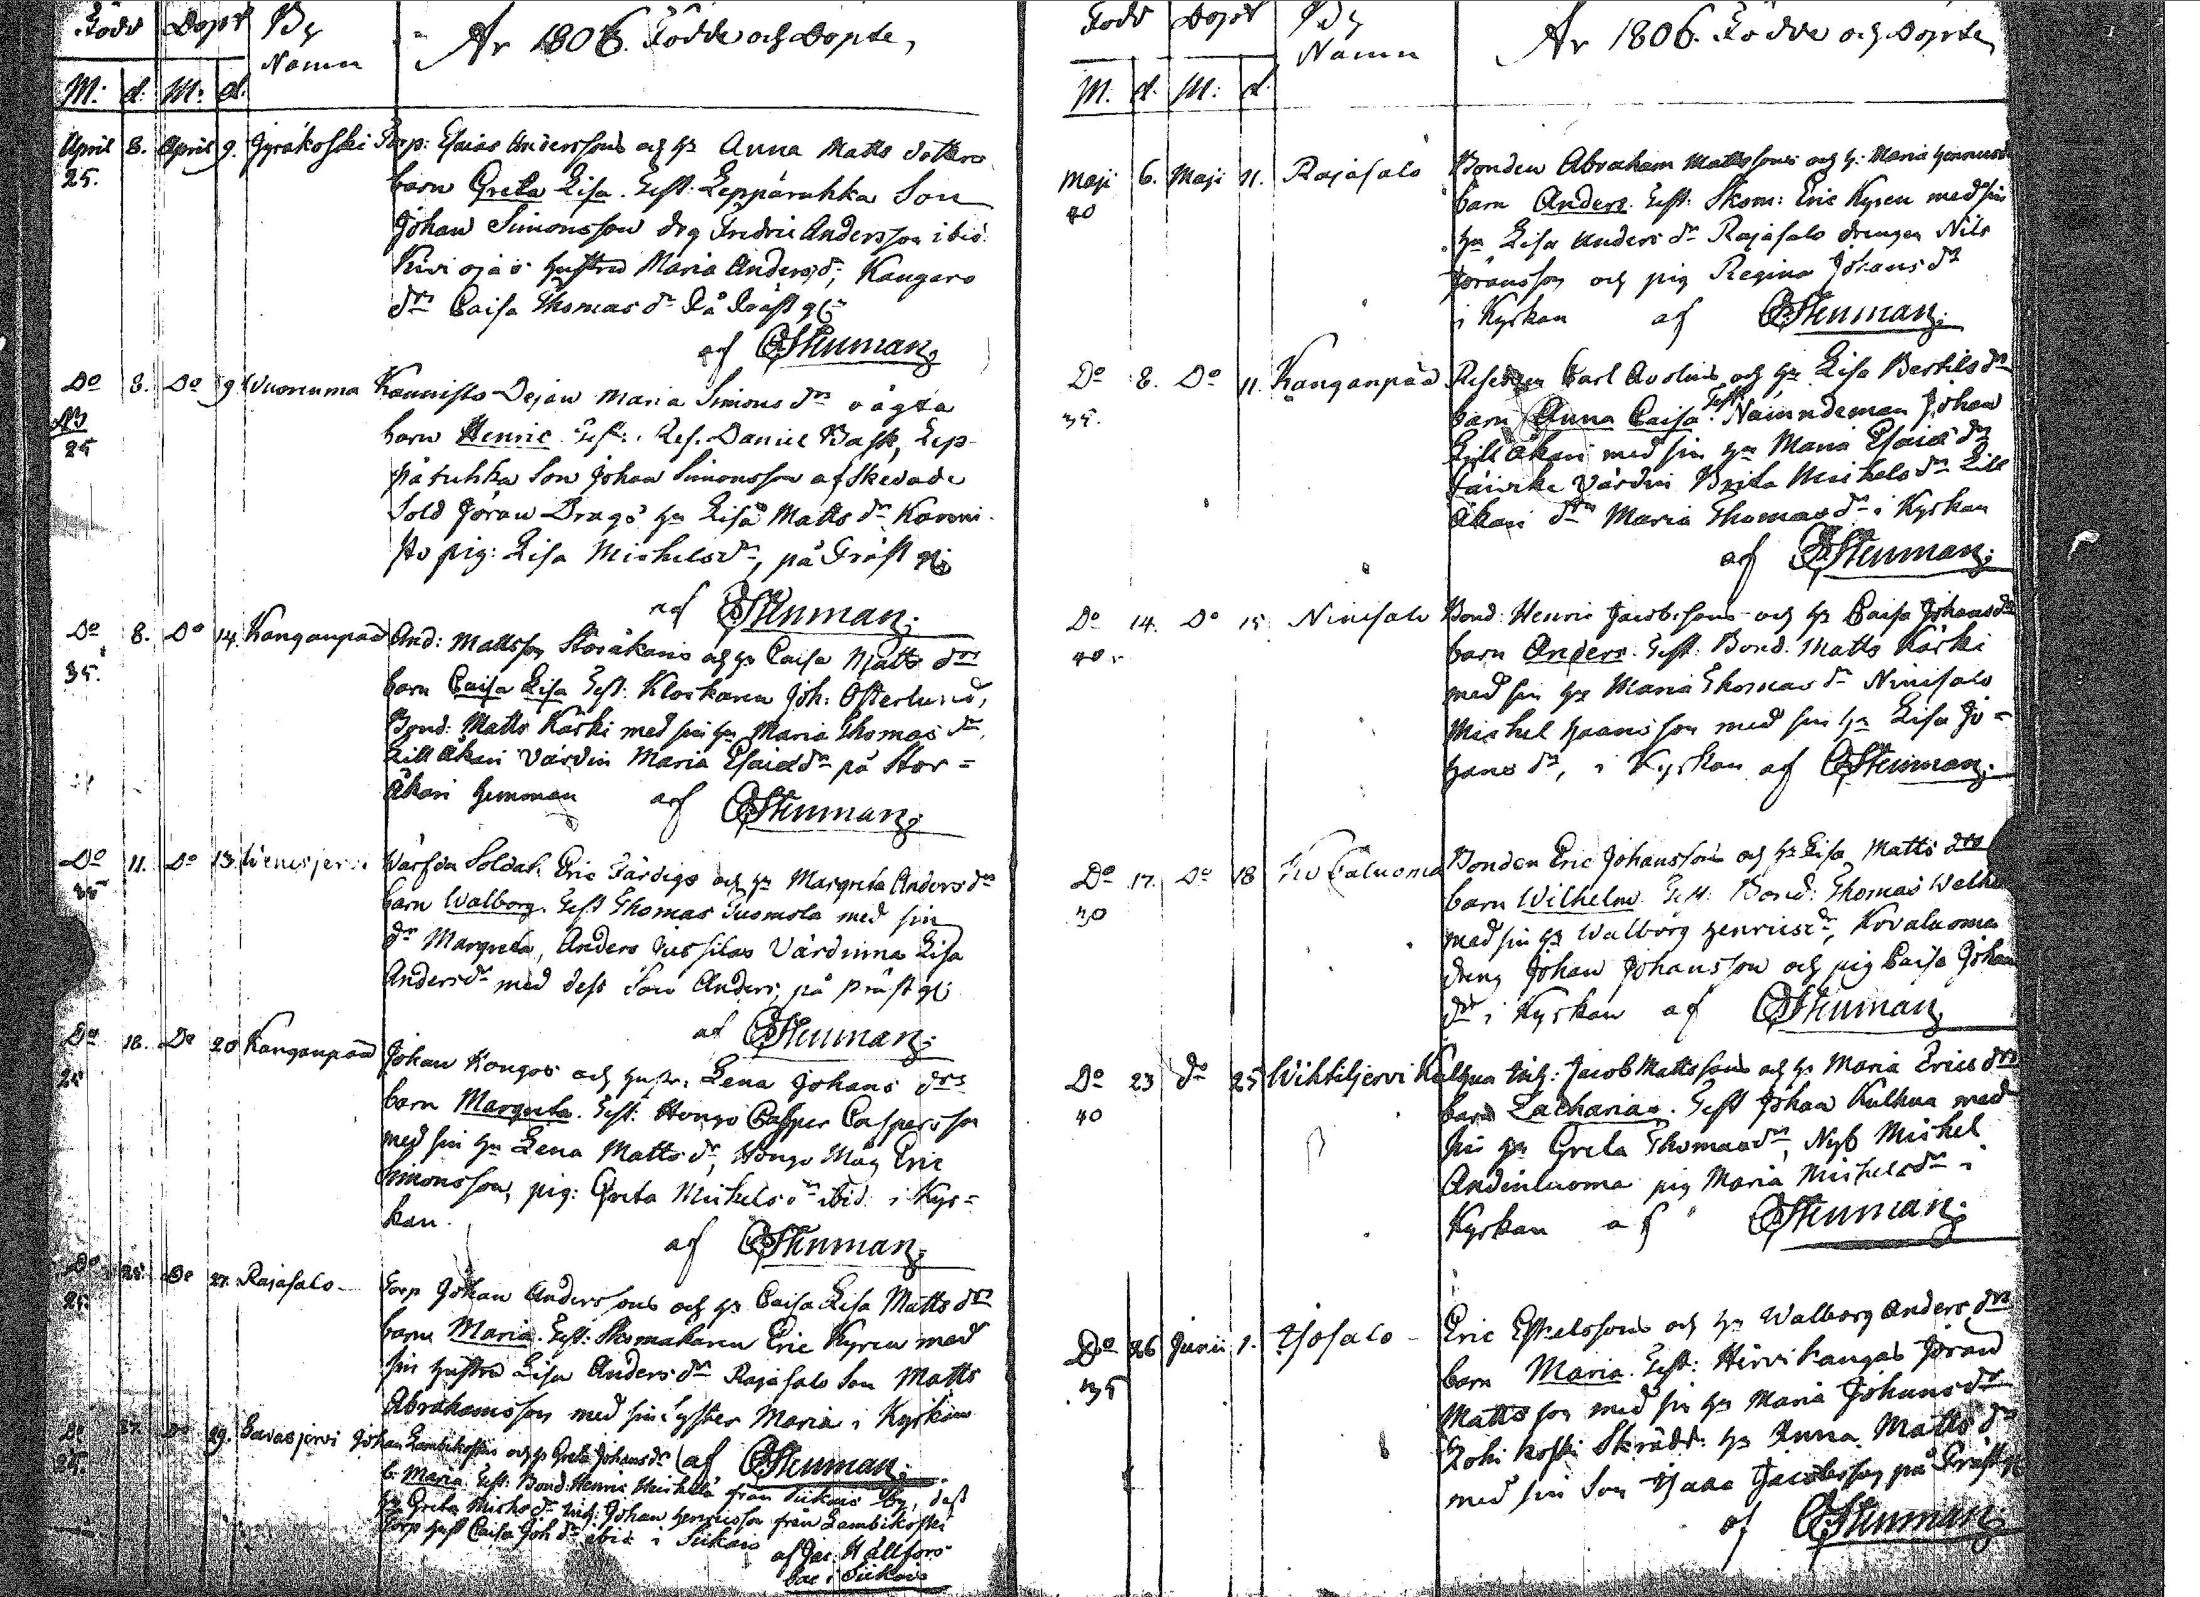 Född Döpt By Namn År 1806. Födde och Döpte,
M: d: M: d.
April 8. April 9. Jyräkoski Torp: Esaias Anderssons och h:s Anna Matts dotters
25. barn Greta Lisa. Test: Leppäruhka Son
Johan Simonsson drg Fredric Andersson ibid:
hustru Maria Anders d:r, Kangars
d:r Caisa Thomas d:r På Präst
af CStenman.
D:o 8. D:o 9. Wuorenma Kaunisto Dejan Maria Simons d:rs oägta
25 barn Henric Test: Ref. Daniel Bask, Lep-
päruhka Son Johan Simonsson afskedade
Sold Jöran Drags h:u Lisa Matts d:r Kauni-
sto pig: Lisa Michelsd:r, på Präst
af CStenman.
D:o 8. D:o 14. Kanganpää And: Mattsson Storäkaris och h:s Caisa Matts d:rs
35. barn Caisa Lisa Test: Klockaren Joh: Österlund,
Bond: Matts Karki med sin h:u Maria Thomas d:r,
Lilläkari Värdin Maria Esaiæd:r på Stor=
Äkari hemman af CStenman.
D:o 11. D:o 13. Wenesjervi Värfda Soldat. Eric Färdigs och h:s Margreta Anders d:rs
35 barn Walborg. Test Thomas Tuomola med sin
d:r Margreta, Anders Värdinna Lisa
Andersd:r med dess Son Anders, på Präst
af CStenman.
D:o 18. D:o 20 Kanganpää Johan Hongos och hustr: Lena Johans d:rs
25 barn Margreta. Test: Hongo Casper Caspersson
med sin h:u Lena Matts d:r, Hongo Måg Eric
Simonsson, pig: Greta Michels d:r ibid: i Kyr=
kan.
af CStenman.
D:o 25. D:o 27. Rajasalo Torp Johan Anderssons och h:s Caisa Lisa Matts d:rs
25. barn Maria. Test: Skomakaren Eric Kyren med
sin hustru Lisa Anders d:r Rajasalo Son Matts
Abrahamsson med sin Syster Maria i Kyrkan
af CStenman.
D:o 27. D:o 29. Johan Lambikoskis och h:s Greta Johans d:r
25. b: Maria Test: Bond: Henric from Siikais By, dess
h:u Greta Mich: d:r Johan Henricsson från Lambikoski
Torp hust Caisa Joh d:r ibid i Siikais
af Jac. Hällfors
Cac i Siikais
Född Döpt By Namn År 1806. Födde och Döpte,
M. d. M: d.
Maji 6. Maji 11. Rajasalo Bonden Abraham Mattssons och h: Maria
40 barn Anders. Test: Skom: Eric Kyren med sin
h:u Lisa Anders d:r Rajasalo drengen Nils
Jöransson och pig Regina Johans d:r
i Kyrkan af CStenman.
D:o 8. D:o 11. Kanganpää Carl Avolins och h:s Lisa Bertils d:rs
35. barn Anna Caisa. Test: Nämndeman Johan
Lilläkari med sin h:u Maria Esaiæ d:r
Värdin Brita Michels d:r Lill
Äkari d:r Maria Thomasd:r i Kyrkan
af CStenman.
D:o 14. D:o 15. Ninisalo Bond: Henric Jacobssons och h:s Caisa Johansd:rs
40. barn Anders. Test: Bond. Matts Karki
med sin h:u Maria Thomas d:r Ninisalo
Michel Haansson med sin h:u Lisa Jo=
hans d:r, i Kyrkan af CStenman.
D:o 17. D:o 18 Kovaluoma Bonden Eric Johanssons och h:s Lisa Matts d:rs
30 barn Wilhelm. Test: Bond: Thomas
med sin h:u Walborg Henricsd:r, Kovaluoma
dreng Johan Johansson och pig Caisa Johans
d:r i Kyrkan af CStenman.
D:o 23 D:o 25 Wihtiljervi Kulhua Inh: Jacob Mattssons och h:s Maria Erics d:rs
40 barn Zacharias. Test Johan Kulhua med
sin h:u Greta Thomasd:r, Nyb Michel
Andinluoma pig Maria Michelsd:r i
Kyrkan af CStenman.
D:o 26 Junii 1. Isosalo Eric Eskelssons och h:s Walborg Anders d:rs
35 barn Maria. Test: Hirvikangas Jöran
Mattsson med sin h:u Maria Johans d:r
Skrädd: h:u Anna Matts d:r
med sin Son Isaac Jacobsson på Präst
af CStenman.